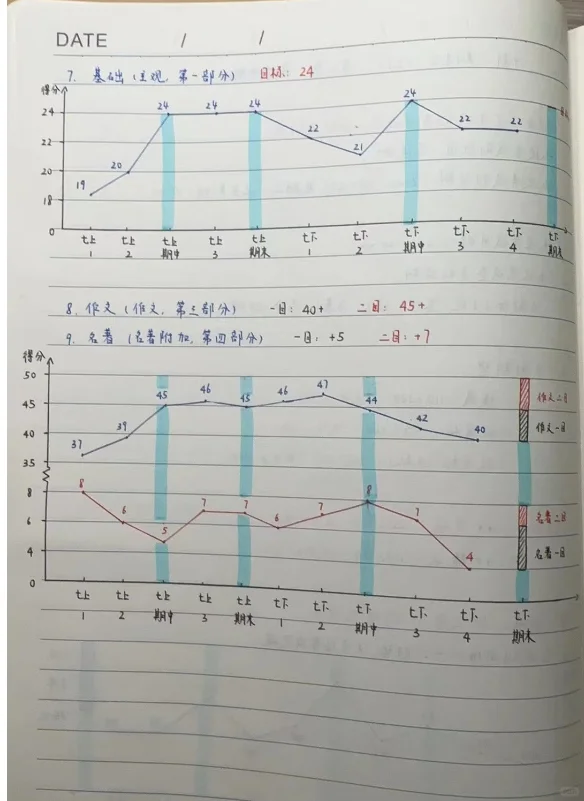 DATE / /
7. 基础(主观, 第一部分) 目标: 24
得分
24
22
20
18
0
19 20 24 24 24 22 21 24 22 22
七上 七上 七上 七上 七上 七下 七下 七下 七下 七下 七下
1 2 期中 3 期末 1 2 期中 3 4 期末
8. 作文(作文, 第三部分) 一目: 40+ 二目: 45+
9. 名著(名著附加, 第四部分) 一目: +5 二目: +7
得分
50
45
40
35
8
6
4
0
37 39 45 46 45 46 47 44 42 40
作文二目
作文一目
8 6 5 7 7 6 7 8 7 4
名著二目
名著一目
七上 七上 七上 七上 七上 七下 七下 七下 七下 七下 七下
1 2 期中 3 期末 1 2 期中 3 4 期末